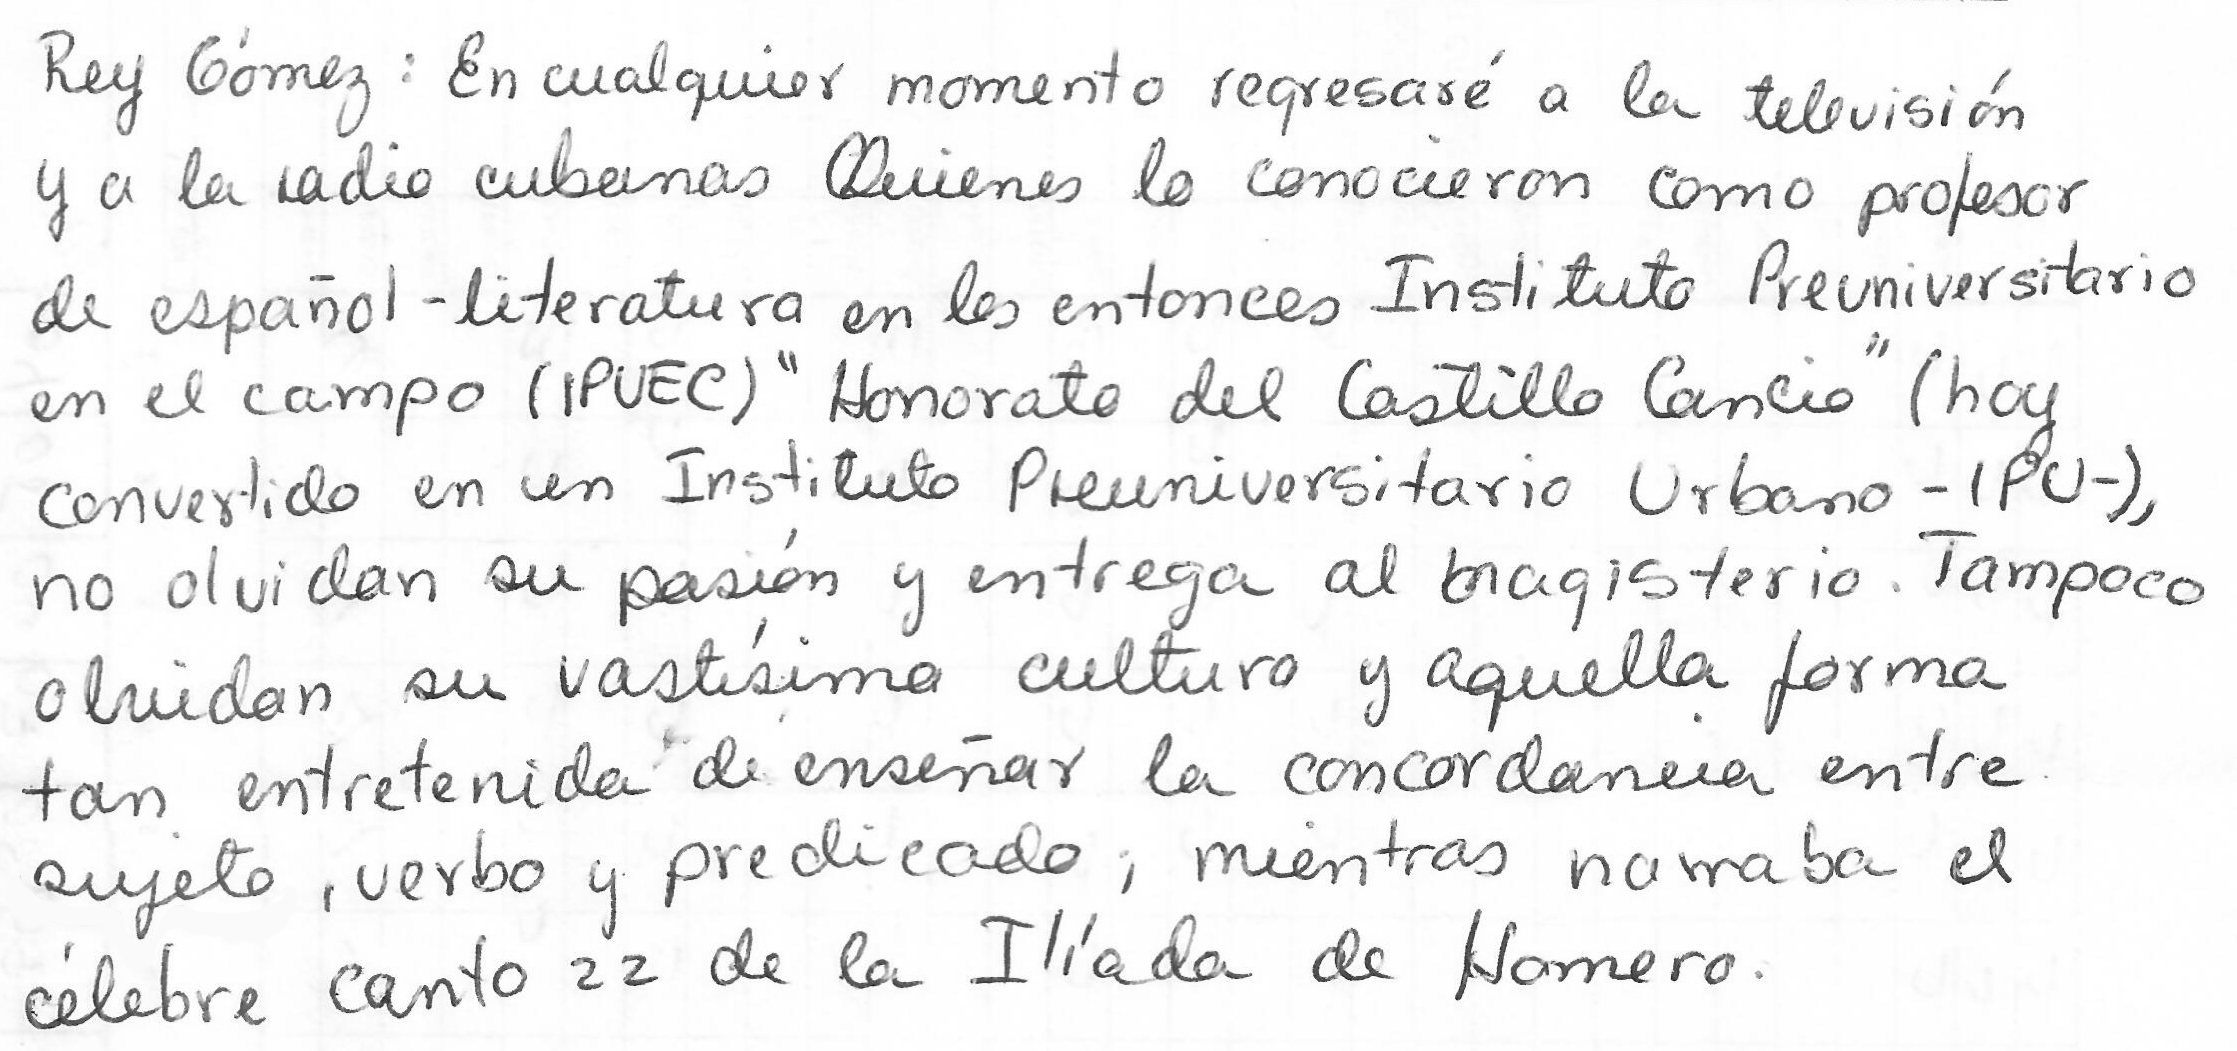 Rey Gómez: En cualquier momento regresaré a la televisión
y a la radio cubanas Quienes lo conocieron como profesor
de español-literatura en los entonces Instituto Preuniversitario
en el campo (IPUEC) "Honorato del Castillo Cancio" (hoy
convertido en un Instituto Preuniversitario Urbano -IPU-),
no olvidan su pasión y entrega al magisterio. Tampoco
olvidan su vastísima cultura y aquella forma
tan entretenida de enseñar la concordancia entre
sujeto, verbo y predicado; mientras narraba el
célebre canto 22 de la Ilíada de Homero.